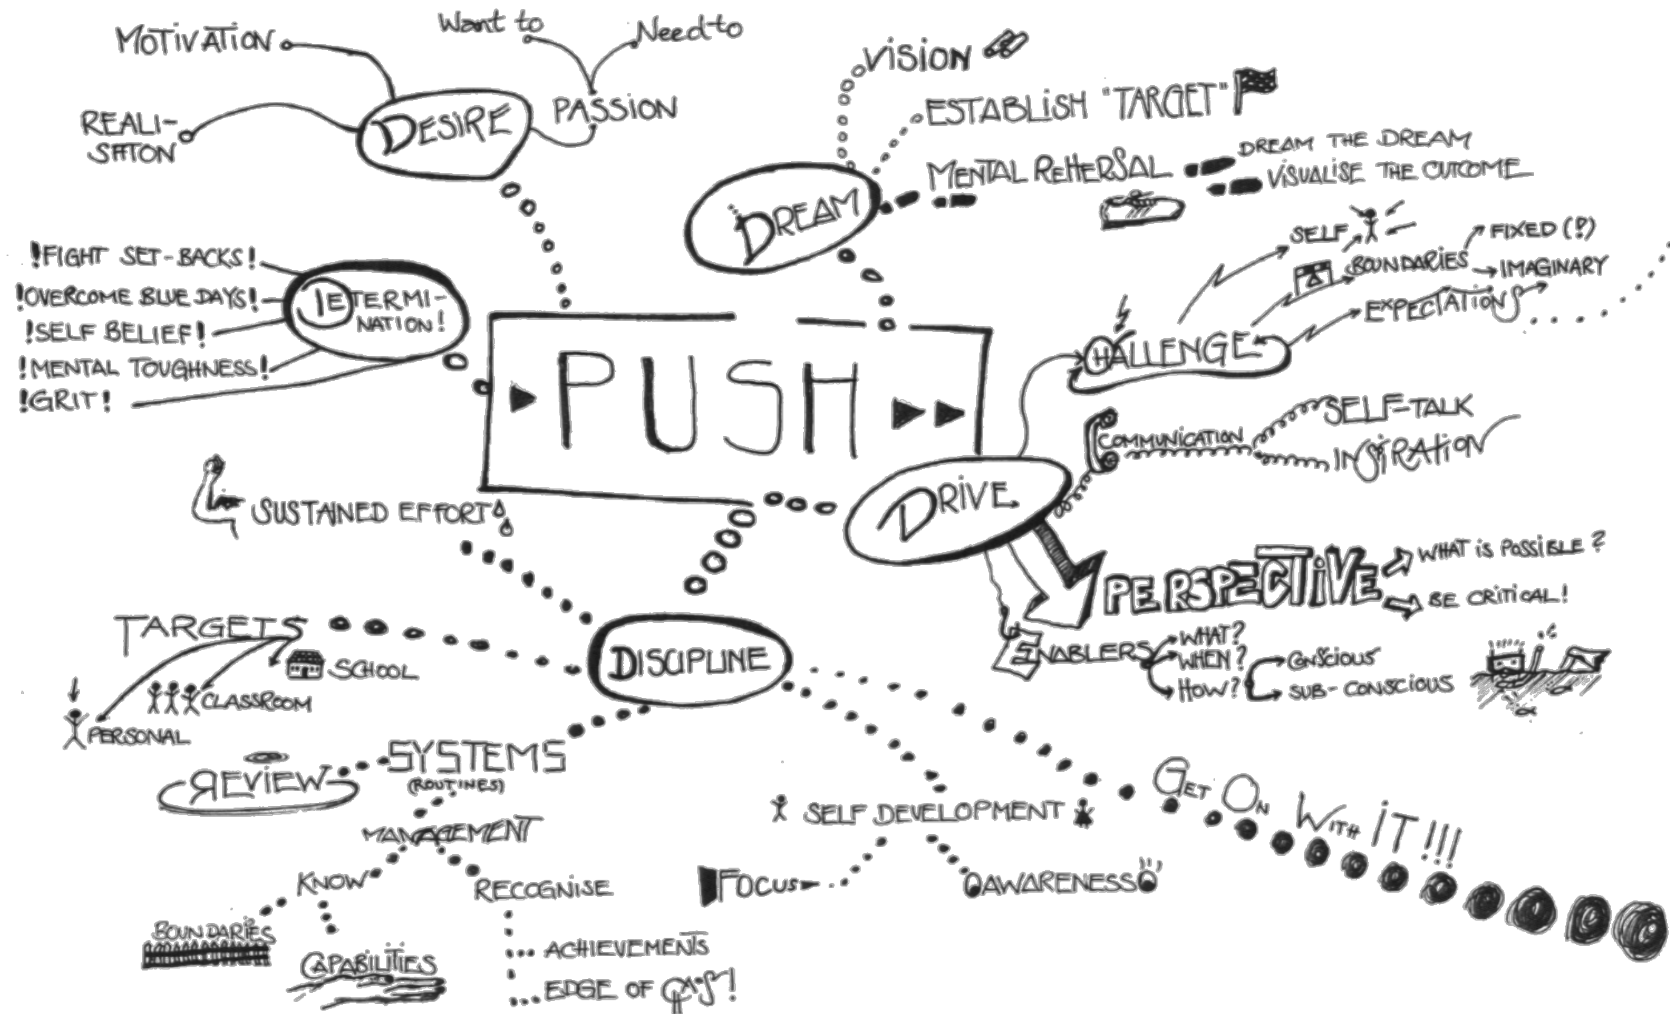 PUSH
DESIRE
MOTIVATION
REALI-
SATION
PASSION
Want to
Need to
DREAM
VISION
ESTABLISH "TARGET"
MENTAL REHERSAL
DREAM THE DREAM
VISUALISE THE OUTCOME
DETERMI-
NATION!
!FIGHT SET-BACKS!
!OVERCOME BLUE DAYS!
!SELF BELIEF!
!MENTAL TOUGHNESS!
!GRIT!
DRIVE
CHALLENGE
SELF
BOUNDARIES
FIXED (?)
IMAGINARY
EXPECTATIONS
COMMUNICATION
SELF-TALK
INSPIRATION
PERSPECTIVE
WHAT iS POSSIBLE?
BE CRITICAL!
ENABLERS
WHAT?
WHEN?
HOW?
CONSCIOUS
SUB-CONSCIOUS
DISCIPLINE
SUSTAINED EFFORT
TARGETS
SCHOOL
CLASSROOM
PERSONAL
SYSTEMS
(ROUTINES)
REVIEW
MANAGEMENT
KNOW
BOUNDARIES
CAPABILITIES
RECOGNISE
ACHIEVEMENTS
EDGE OF
SELF DEVELOPMENT
FOCUS
AWARENESS
GET ON WITH IT!!!